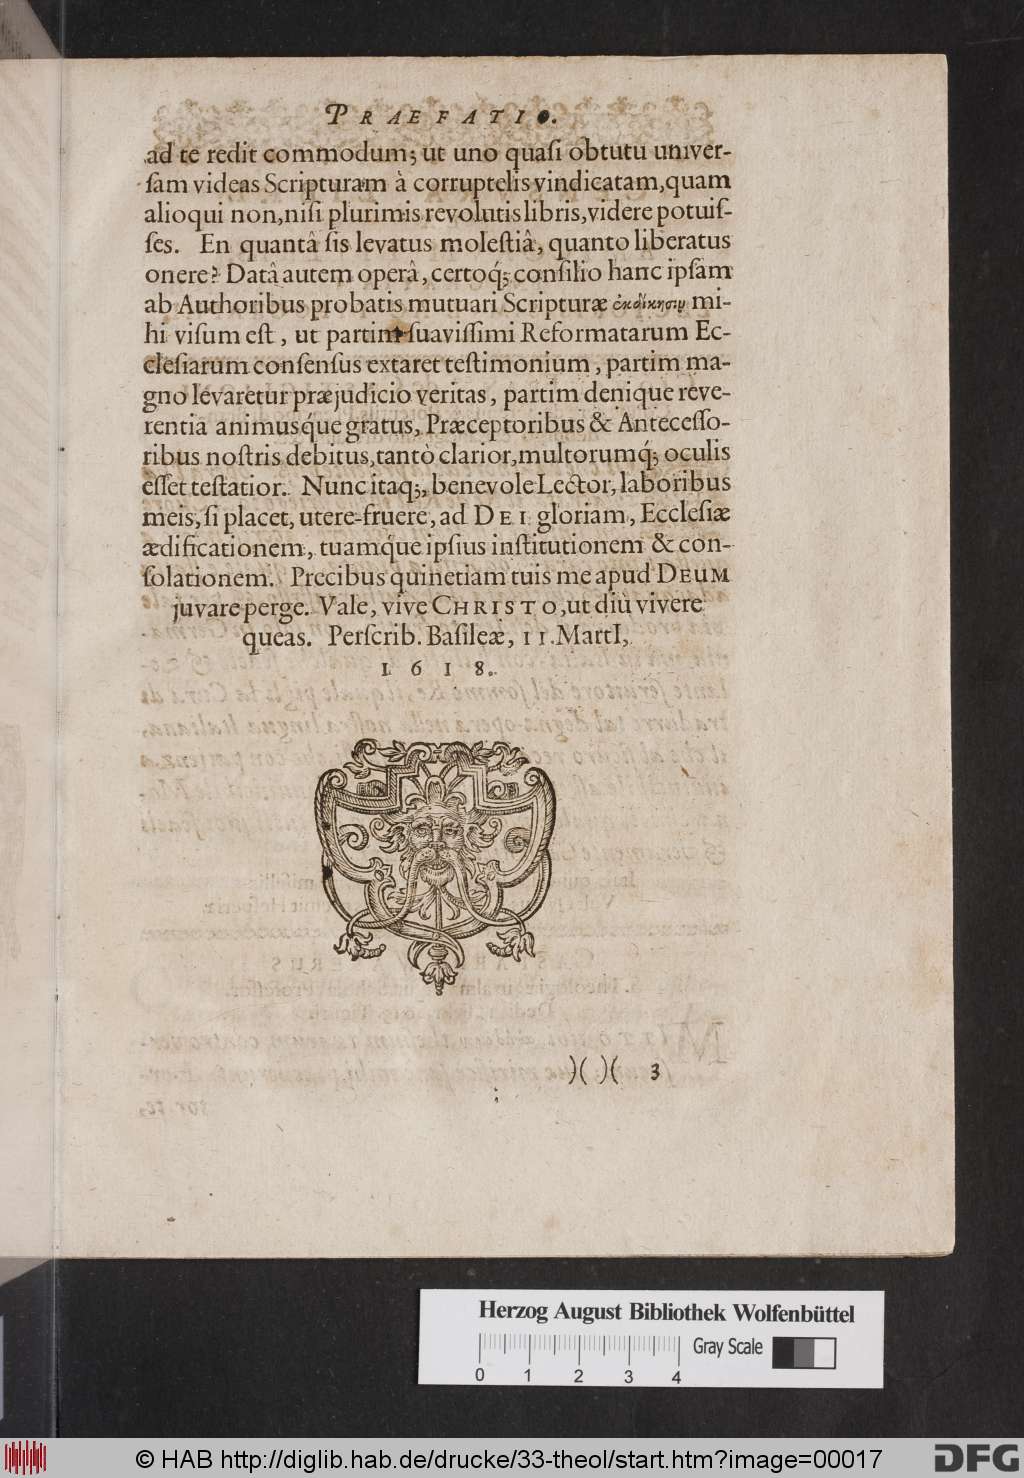 PRAEFATIO.
ad te redit commodum; ut uno quaſi obtutu univer-
ſam videas Scripturam à corruptelis vindicatam, quam
alioqui non, niſi plurimis revolutis libris, videre potuiſ-
ſes. En quantâ ſis levatus moleſtiâ, quanto liberatus
onere? Datâ autem operâ, certoq́; conſilio hanc ipſam
ab Authoribus probatis mutuari Scripturæ ἐκδίκησιν mi-
hi viſum eſt, ut partim ſuaviſſimi Reformatarum Ec-
cleſiarum conſenſus extaret teſtimonium, partim ma-
gno levaretur præjudicio veritas, partim denique reve-
rentia animusq́ue gratus, Præceptoribus & Anteceſſo-
ribus noſtris debitus, tantò clarior, multorumq́; oculis
eſſet teſtatior. Nunc itaq;, benevole Lector, laboribus
meis, ſi placet, utere-fruere, ad DEI gloriam, Eccleſiæ
ædificationem, tuamq́ue ipſius inſtitutionem & con-
ſolationem. Precibus quinetiam tuis me apud DEUM
juvare perge. Vale, vive CHRISTO, ut diù vivere
queas. Perſcrib. Baſileæ, 11. MartI,
1618.
)( )( 3
Herzog August Bibliothek Wolfenbüttel
0 1 2 3 4
Gray Scale
© HAB http://diglib.hab.de/drucke/33-theol/start.htm?image=00017
DFG